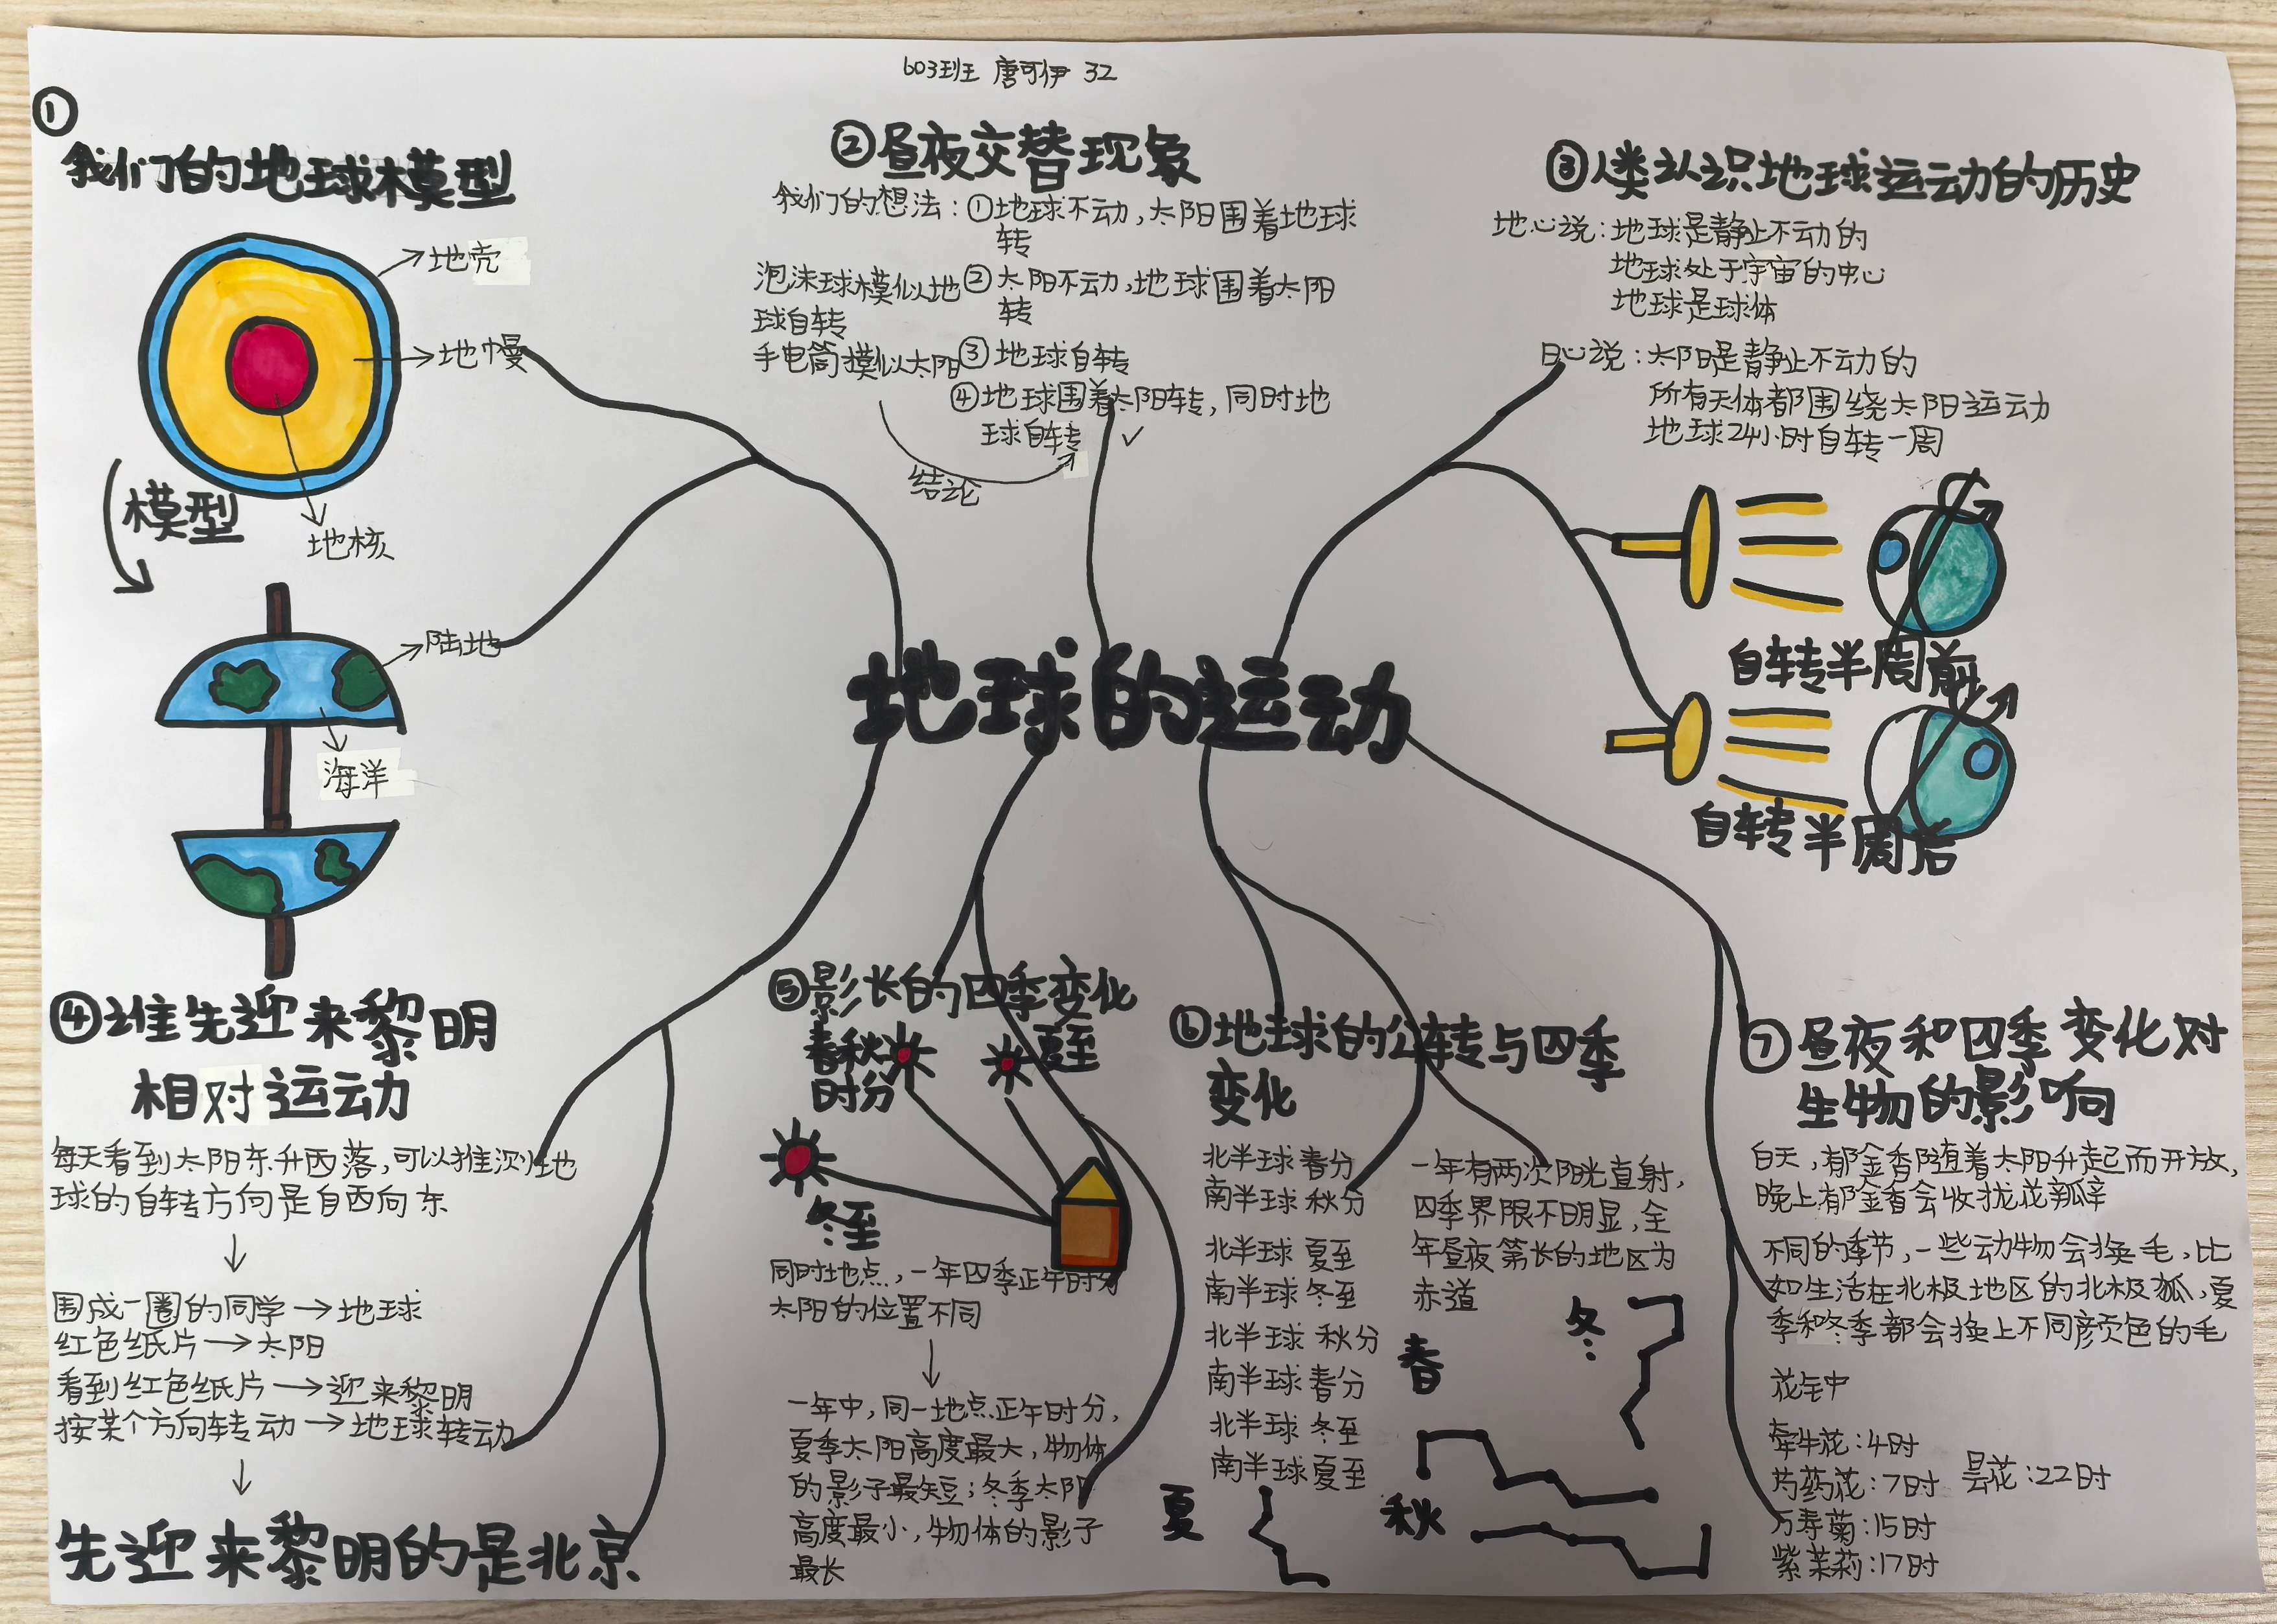 603班 唐可伊 32
①
我们的地球模型
地壳
地幔
地核
模型
陆地
海洋
②昼夜交替现象
我们的想法：①地球不动，太阳围着地球
转
泡沫球模似地
球自转
手电筒摸似太阳
②太阳不动，地球围着太阳
转
③地球自转
④地球围着太阳转，同时地
球自转
✓
结论
③人类认识地球运动的历史
地心说：地球是静止不动的
地球处于宇宙的中心
地球是球体
日心说：太阳是静止不动的
所有天体都围绕太阳运动
地球24小时自转一周
自转半周前
自转半周后
地球的运动
④谁先迎来黎明
相对运动
每天看到太阳东升西落，可以推测地
球的自转方向是自西向东
围成一圈的同学→地球
红色纸片→太阳
看到红色纸片→迎来黎明
按某个方向转动→地球转动
先迎来黎明的是北京
⑤影长的四季变化
春秋
时分
夏至
冬至
同时地点，一年四季正午时分
太阳的位置不同
一年中，同一地点正午时分，
夏季太阳高度最大，物体
的影子最短；冬季太阳
高度最小，物体的影子
最长
⑥地球的公转与四季
变化
北半球 春分
南半球 秋分
北半球 夏至
南半球 冬至
北半球 秋分
南半球 春分
北半球 冬至
南半球 夏至
一年有两次阳光直射，
四季界限不明显，全
年昼夜第长的地区为
赤道
冬
春
夏
秋
⑦昼夜和四季变化对
生物的影响
白天，郁金香随着太阳升起而开放，
晚上郁金香会收拢花瓣
不同的季节，一些动物会换毛，比
如生活在北极地区的北极狐，夏
季和冬季都会换上不同颜色的毛
花钟
牵牛花：4时
芍药花：7时
昙花：22时
万寿菊：15时
紫茉莉：17时